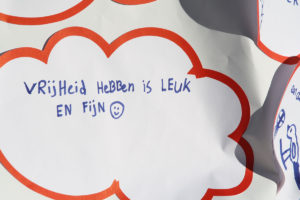 VRIJHEID HEBBEN IS LEUK
EN FIJN ☺